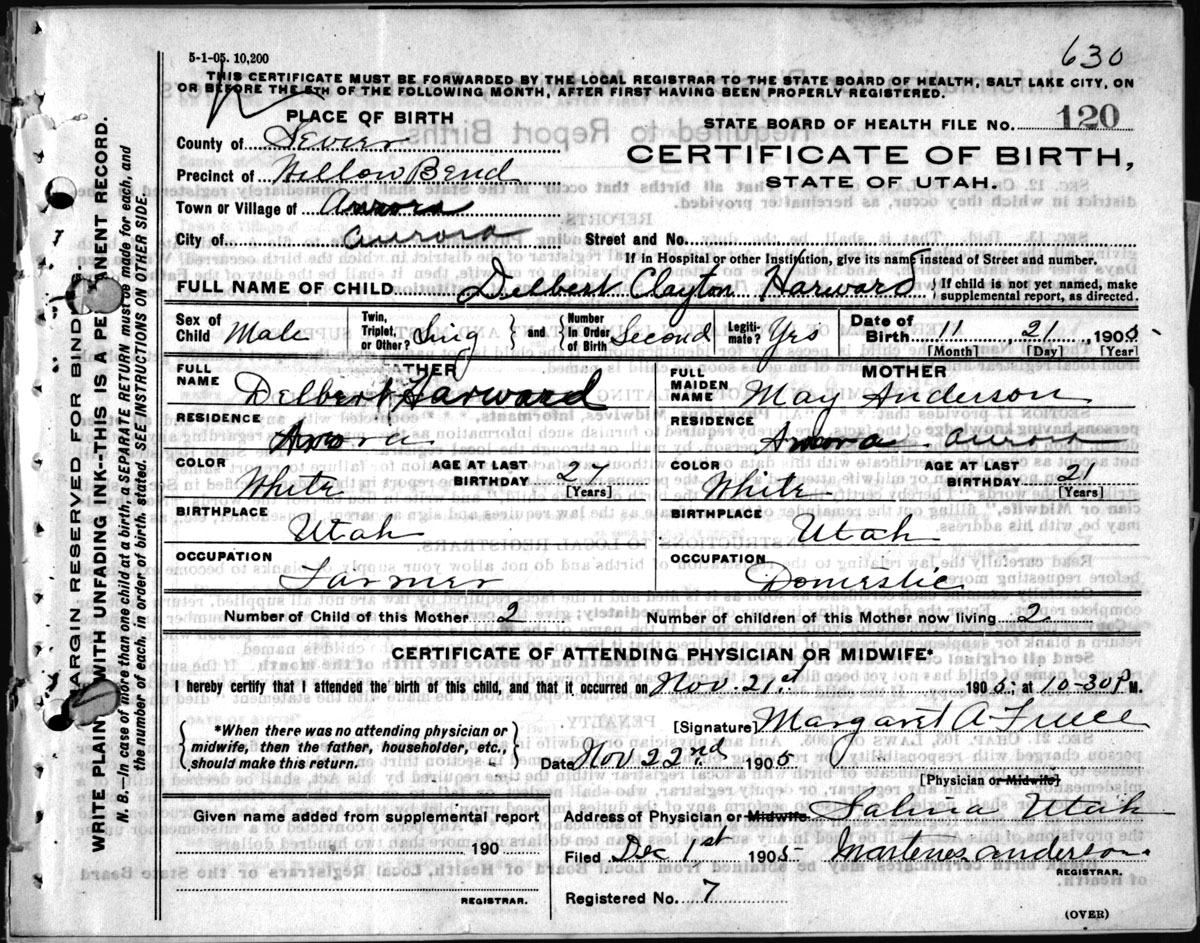 630
5-1-05. 10,200
THIS CERTIFICATE MUST BE FORWARDED BY THE LOCAL REGISTRAR TO THE STATE BOARD OF HEALTH, SALT LAKE CITY, ON
OR BEFORE THE 5TH OF THE FOLLOWING MONTH, AFTER FIRST HAVING BEEN PROPERLY REGISTERED.
PLACE OF BIRTH
STATE BOARD OF HEALTH FILE No. 120
County of Sevier
CERTIFICATE OF BIRTH,
Precinct of Willow Bend
STATE OF UTAH.
Town or Village of Aurora
City of Aurora Street and No.
If in Hospital or other Institution, give its name instead of Street and number.
FULL NAME OF CHILD Delbert Clayton Harward { If child is not yet named, make supplemental report, as directed.
Sex of Child Male Twin, Triplet, or Other? Sing } and { Number in Order of Birth Second Legiti-mate? Yes Date of Birth 11 21 1905
[Month] [Day] [Year]
FATHER
FULL NAME Delbert Harward
RESIDENCE
COLOR White AGE AT LAST BIRTHDAY 27 [Years]
BIRTHPLACE Utah
OCCUPATION Farmer
MOTHER
FULL MAIDEN NAME May Anderson
RESIDENCE Aurora
COLOR White AGE AT LAST BIRTHDAY 21 [Years]
BIRTHPLACE Utah
OCCUPATION Domestic
Number of Child of this Mother 2 Number of children of this Mother now living 2
CERTIFICATE OF ATTENDING PHYSICIAN OR MIDWIFE*
I hereby certify that I attended the birth of this child, and that it occurred on Nov. 21st 1905; at 10-30 P M.
{ *When there was no attending physician or
midwife, then the father, householder, etc.,
should make this return. }
[Signature] Margaret A
Date Nov 22nd 1905
[Physician or Midwife]
Given name added from supplemental report
190
REGISTRAR.
Address of Physician or Midwife Salina Utah
Filed Dec 1st 1905 Anderson
REGISTRAR.
Registered No. 7
(OVER)
MARGIN RESERVED FOR BINDING
WRITE PLAINLY WITH UNFADING INK--THIS IS A PERMANENT RECORD.
N. B.—In case of more than one child at a birth, a SEPARATE RETURN must be made for each, and
the number of each, in order of birth, stated. SEE INSTRUCTIONS ON OTHER SIDE.